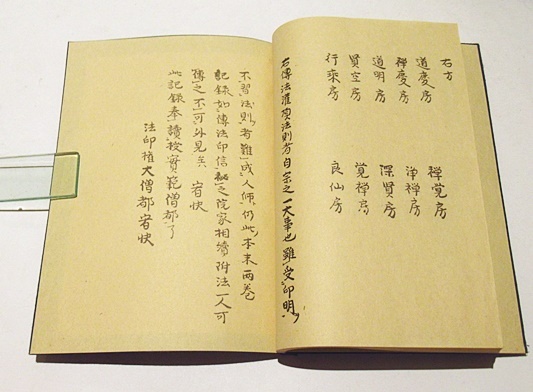 右方
道慶房 禅覚房
禅慶房 浄禅房
道明房 深賢房
賢空房 覚禅房
行乘房 良仙房
右傳法灌頂法則者自宗之一大事也雖受印明
不習法則者難成人師仍此本末两卷
記録如傳法印信秘之院家相續附法一人可
傳之不可外見矣 宥快
此記録奉讀授實範僧都了
法印権大僧都宥快